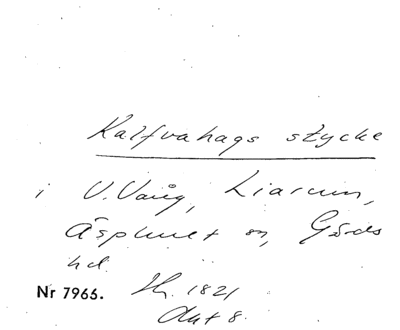 Kalfvahags stycke
i V. Vång, Liarum,
Äsphult sn, Gärds
hd.
Nr 7966. Sk. 1821
Akt 8.